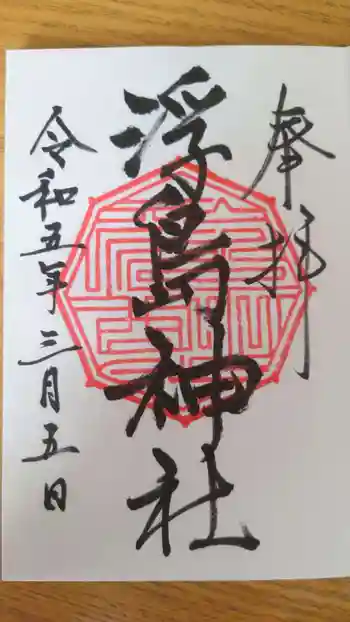 奉拝
浮島神社
令和五年三月五日